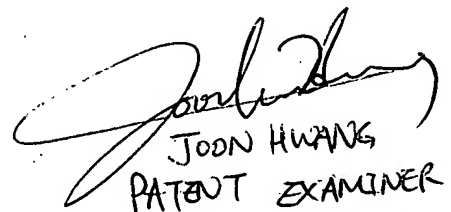 JOON HWANG
PATENT EXAMINER